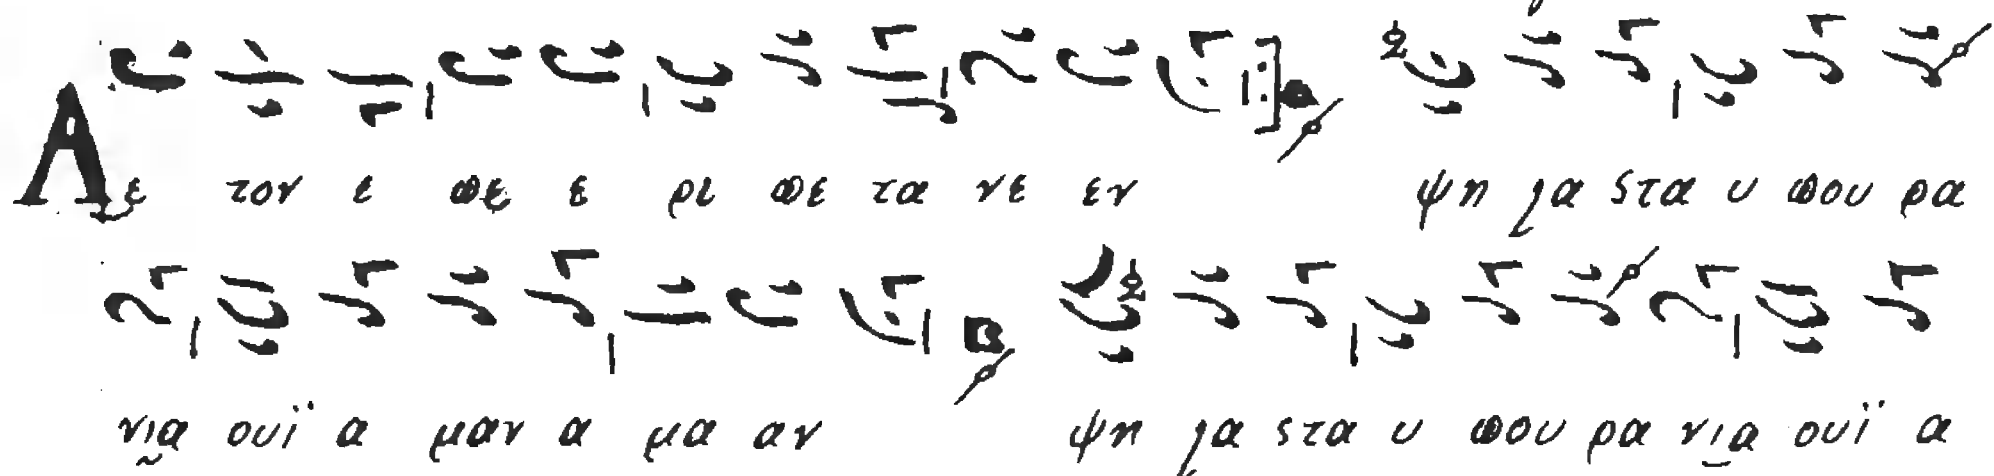 Αε τον ε πε ε ρι πε τα νε εν ψη λα στα υ που ρα
νια ουϊ α μαν α μα αν ψη λα στα υ που ρα νια ουϊ α